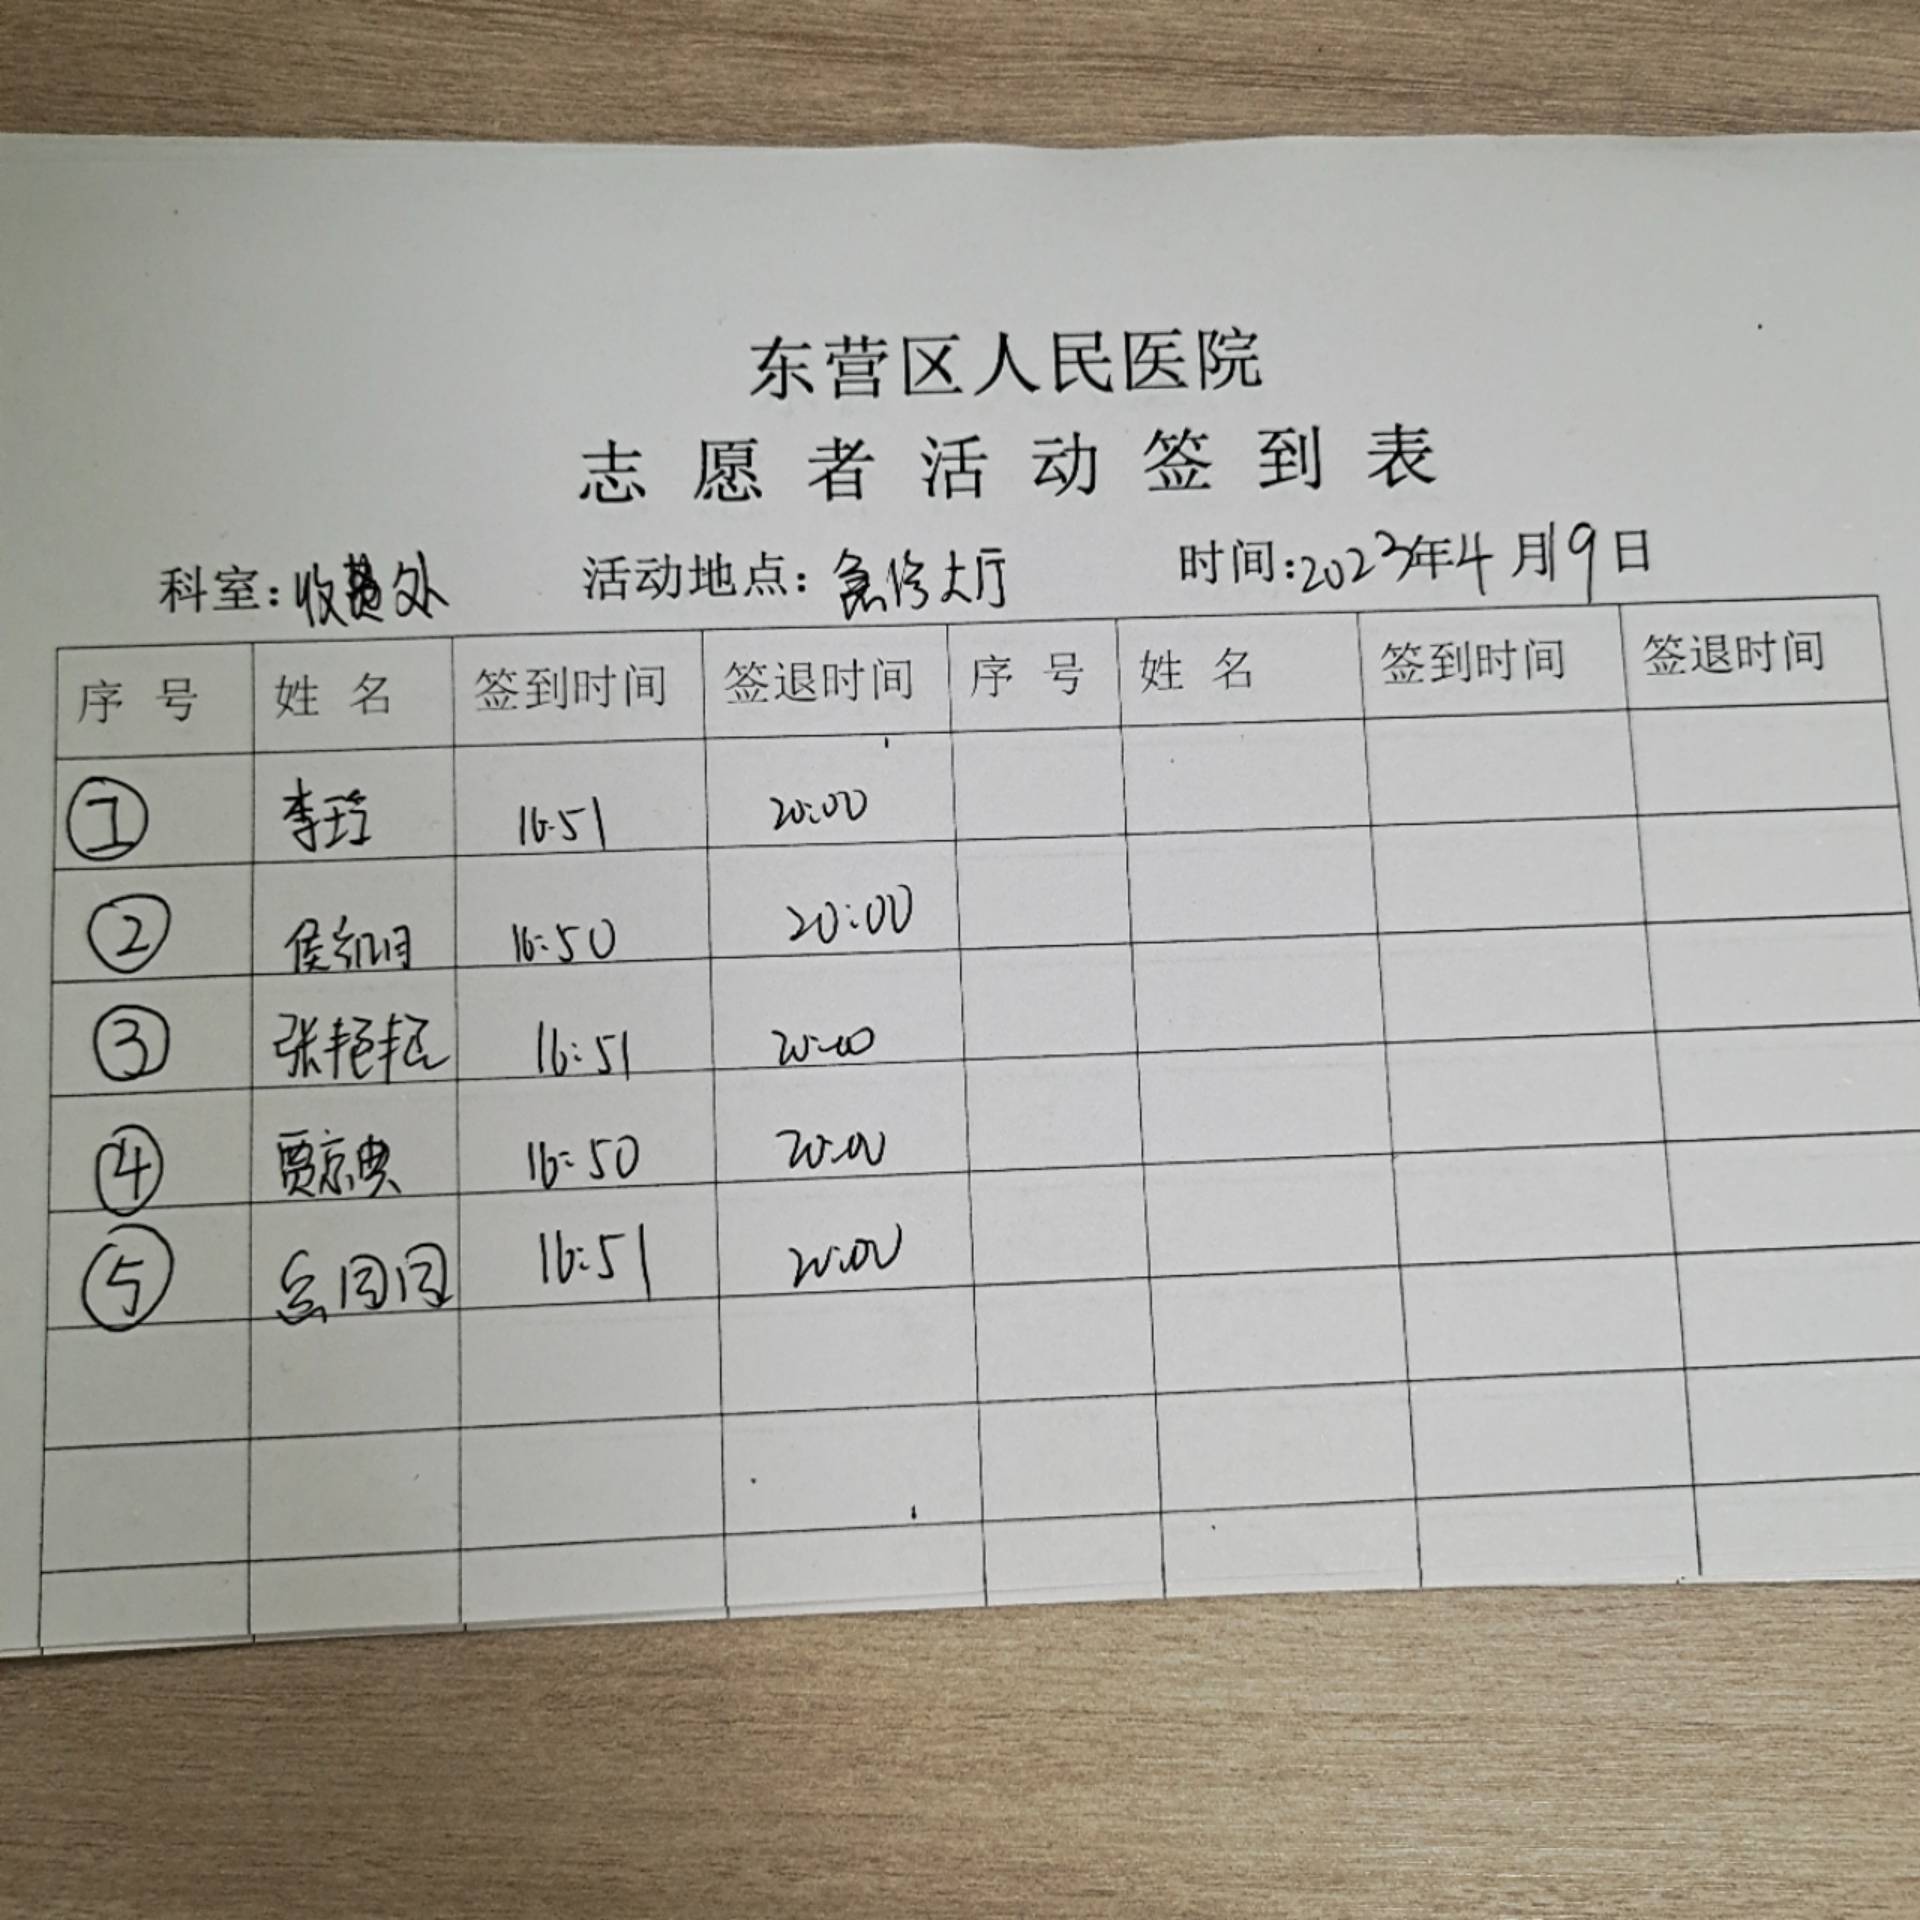 东营区人民医院
志愿者活动签到表
科室:收费处 活动地点:急诊大厅 时间:2023年4月19日
序号 姓名 签到时间 签退时间 序号 姓名 签到时间 签退时间
① 李 16:51 20:00
② 侯 16:50 20:00
③ 张艳艳 16:51 20:00
④ 贾京典 16:50 20:00
⑤ 16:51 20:00